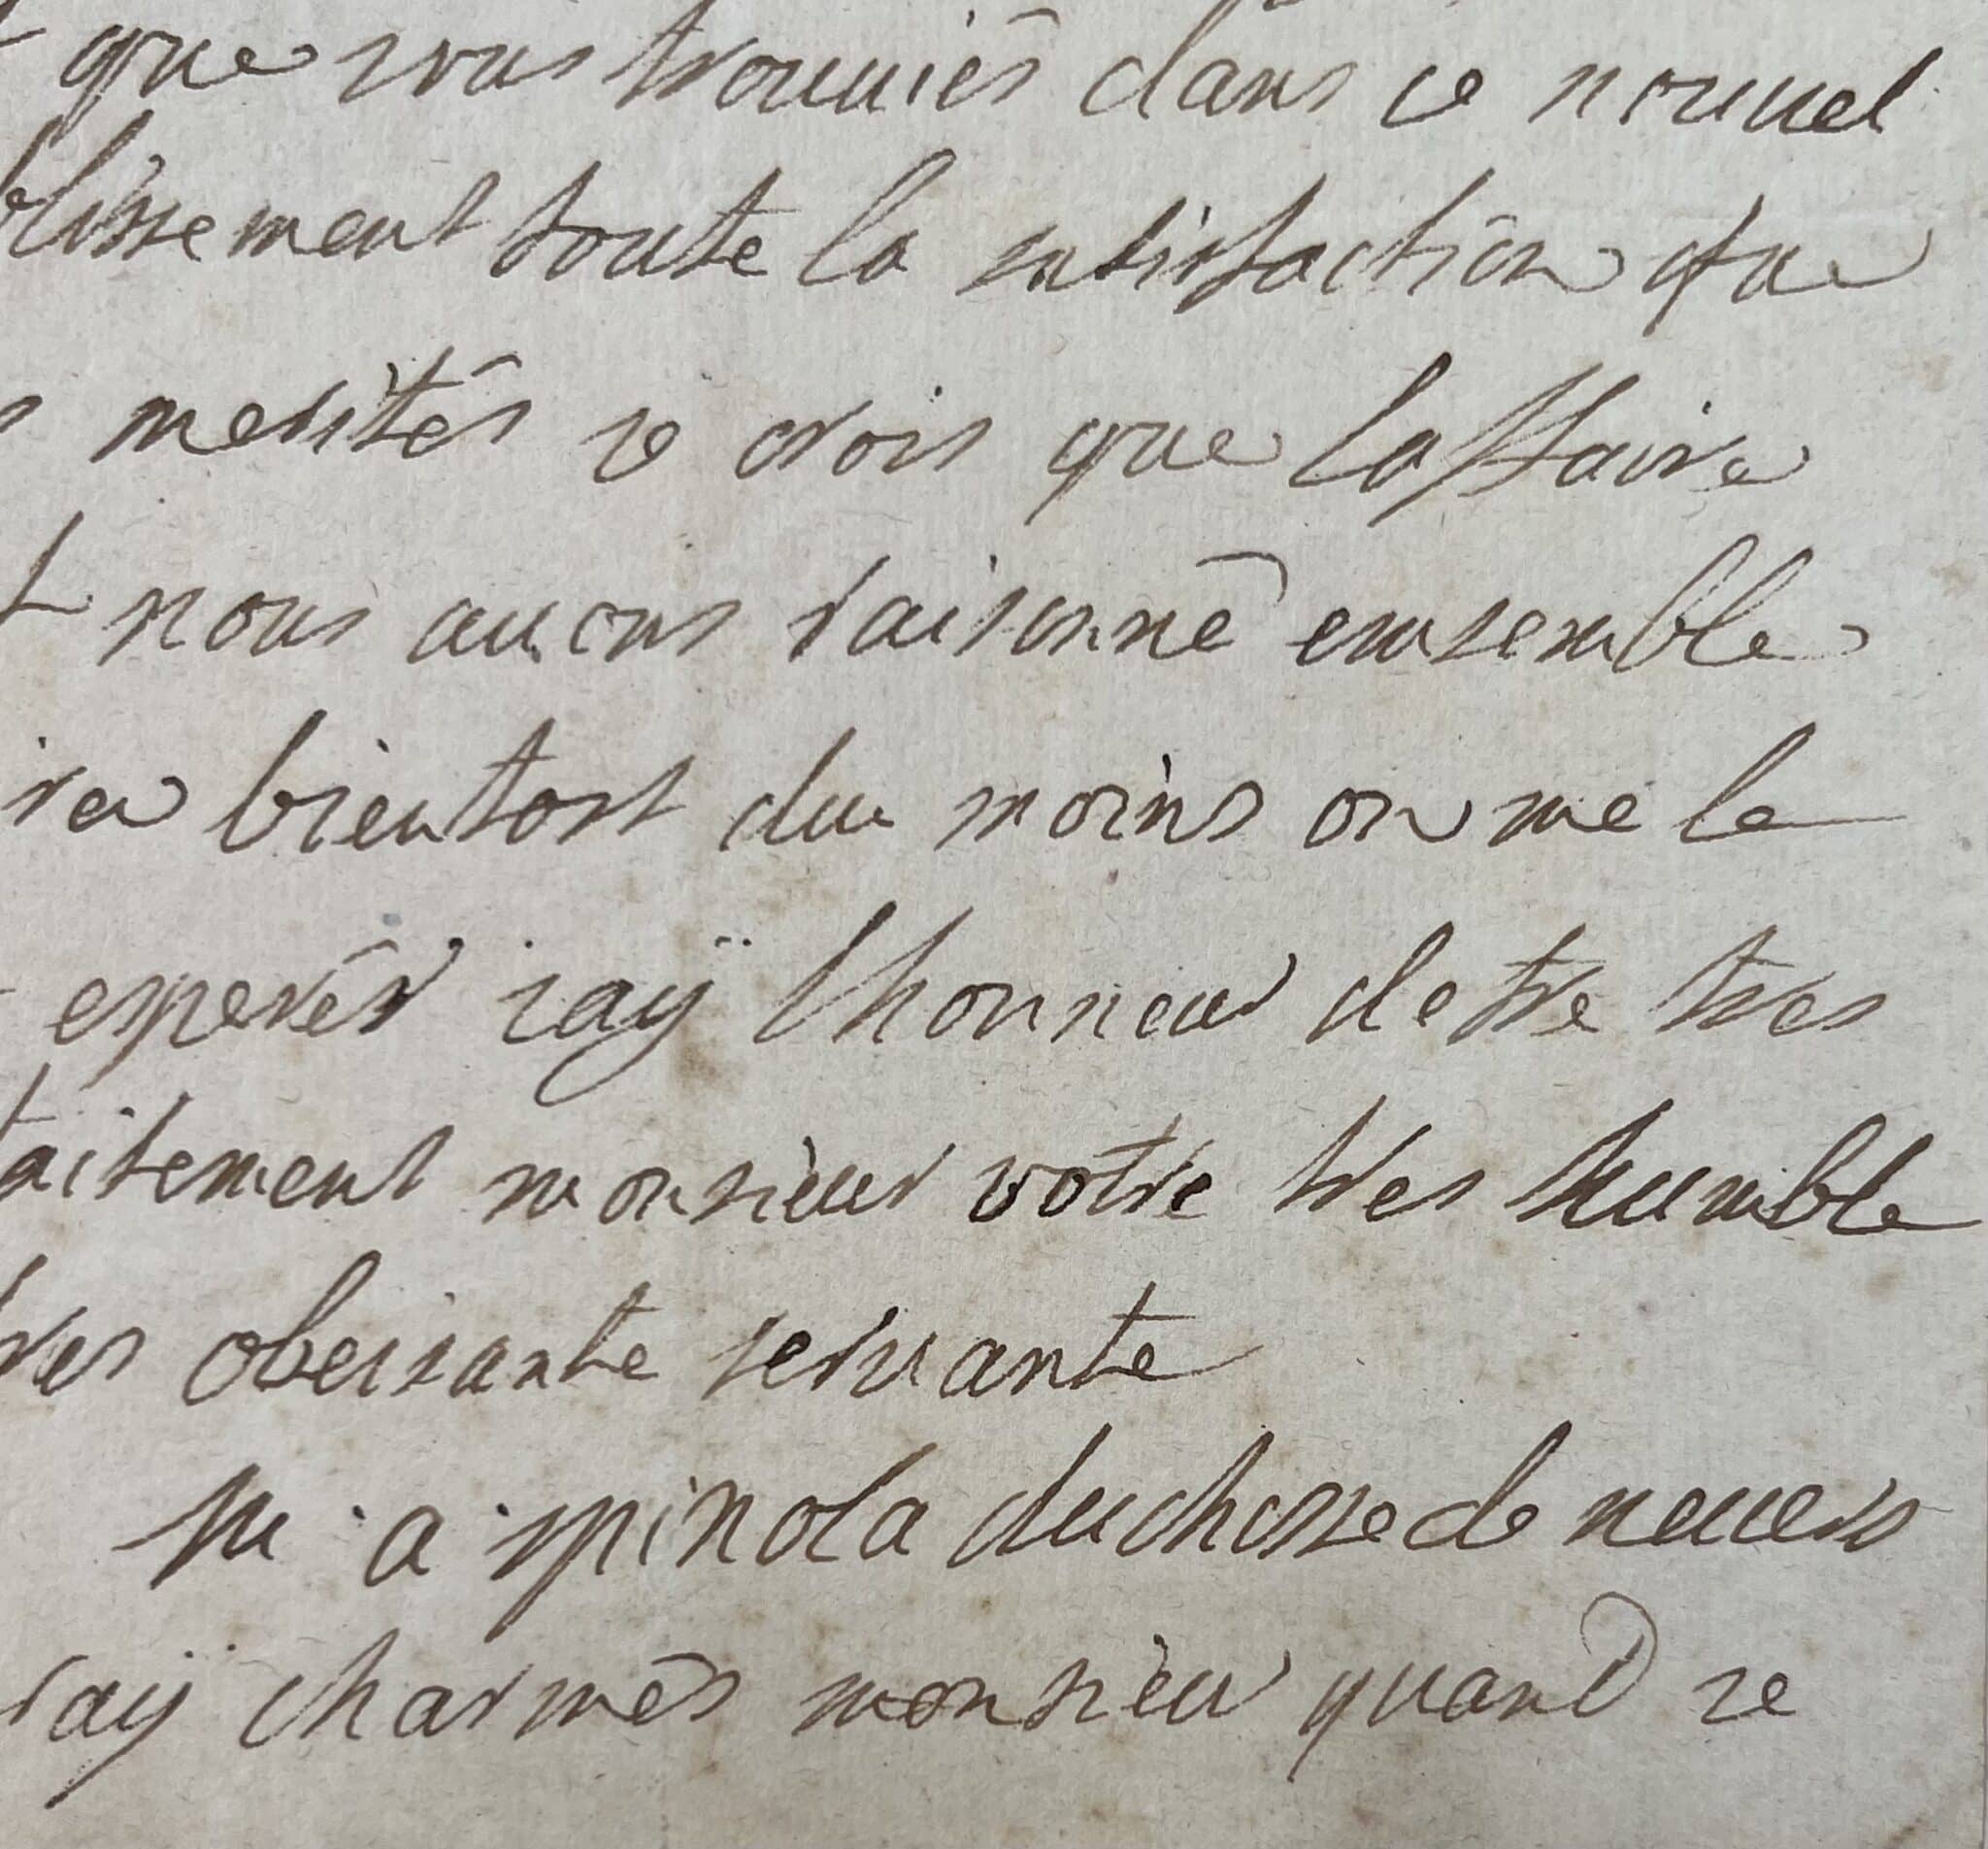 que vous trouuiés dans ce nouuel
blissement toute la satisfaction que
merités ie crois que laffaire
nous auons raisonné ensemble
ira bientost du moins on me le
esperér iaÿ lhonneur detre tres
faitement monsieur votre tres humble
tres obeisante seruante
m · a · spinola duchesse de neuers
raÿ charmés monsieur quand ie